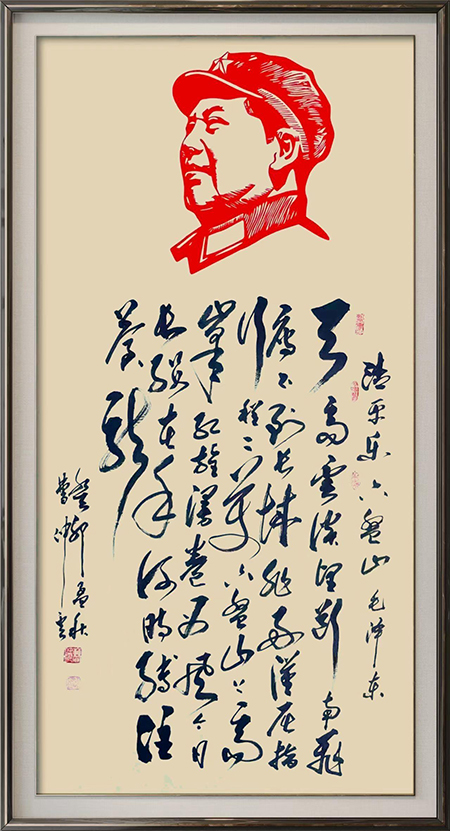 清平乐六盘山 毛泽东
天高雲淡望断南飛
雁不到长城非好漢屈指
行程二万六盘山上高
峰红旗漫卷西风今日
长缨在手何时缚住
苍龙
孟秋